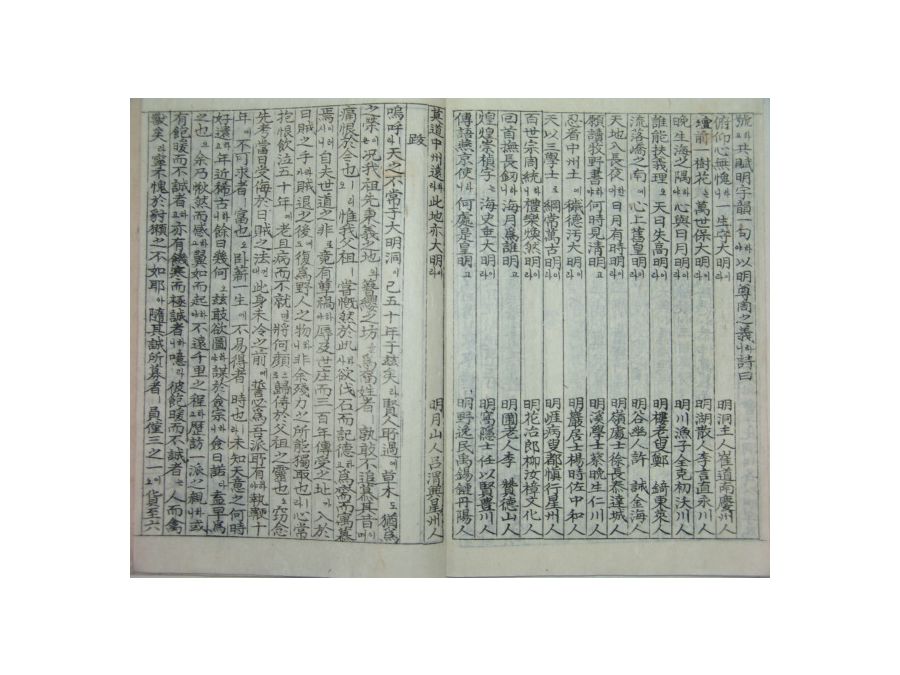 號요共賦明字韻一句하야以明尊周之義하니詩曰
俯仰心無愧니一生守大明이라 明洞主人崔道南慶州人
壇前一樹花는萬世保大明이라 明湖散人李言直永川人
晩生海之隅心與日月明이라 明川漁子全克初沃川人
誰能扶義理오天日失高明이라 明樓老叟鄭 錡東萊人
流落嶠之南이心上舊皇明이라 明谷坐人許 誠金海人
天地入長夜한대日月有時明이라 明嶺處士徐長泰達城人
願讀牧野書야何時見清明고 明溪學士蔡晩生仁川人
忍看中州土에穢德汚大明이라 明巖居士楊時佐中和人
天以三學士로綱常萬古明이라 明涯病叟都愼行星州人
百世宗周統이라禮樂煥然明이라 明花治郞柳汝樟文化人
回首撫長釰하니海月爲誰明고 明圃老人李 贊德山人
煌煌崇禎字는海史垂大明이라 明窩隱士任以賢豊川人
傳語燕京使하니何處是皇明고 明野逸民禹錫鏈丹陽人
莫道中州遠하라此地亦大明이라 明月山人呂渭興星州人
跋
嗚呼라天之不常于大明洞이已五十年于玆矣라賢人所過에草木도猶爲
之榮은況我祖先東義之地와簪纓之坊을爲喬姓者孰敢不追慕其昔며
痛恨於今也리오惟我父祖一嘗慨然於此사欲伐石而記德하爲寓而寓慕
焉이러시니自夫世道之非로竟有孽禍하야辱及世庄而三百年傳受之址가入於
日賊之手가賊退之後에復爲野人之物하니非余殘力으로所能獨取也라心常
抱恨飮泣五十年에老且病而不就면將何顔으로歸侍於父祖之靈也오竊念
先考當日受侮於日賊之法컨대此身未冷之前에誓心爲吾派所有하야執鞭十
年에不可求者一富也오臥薪一生에不易得者一時也라未知天意之何時
好還고年近稀古하니餘日幾何오玆敢欲圖하야謀於食宗하니僉曰諾다盍早爲
之也오余乃愀然而感하고翼如而起하야不遠千里之程하고歷訪一派之親하니或
有飽暖而不誠者亦有饑寒而極誠者하니噫라彼飽暖而不誠者는人而禽
獸矣라寧不愧於豺獺之不如耶아隨其誠所募者一員僅三之一이오貨至六